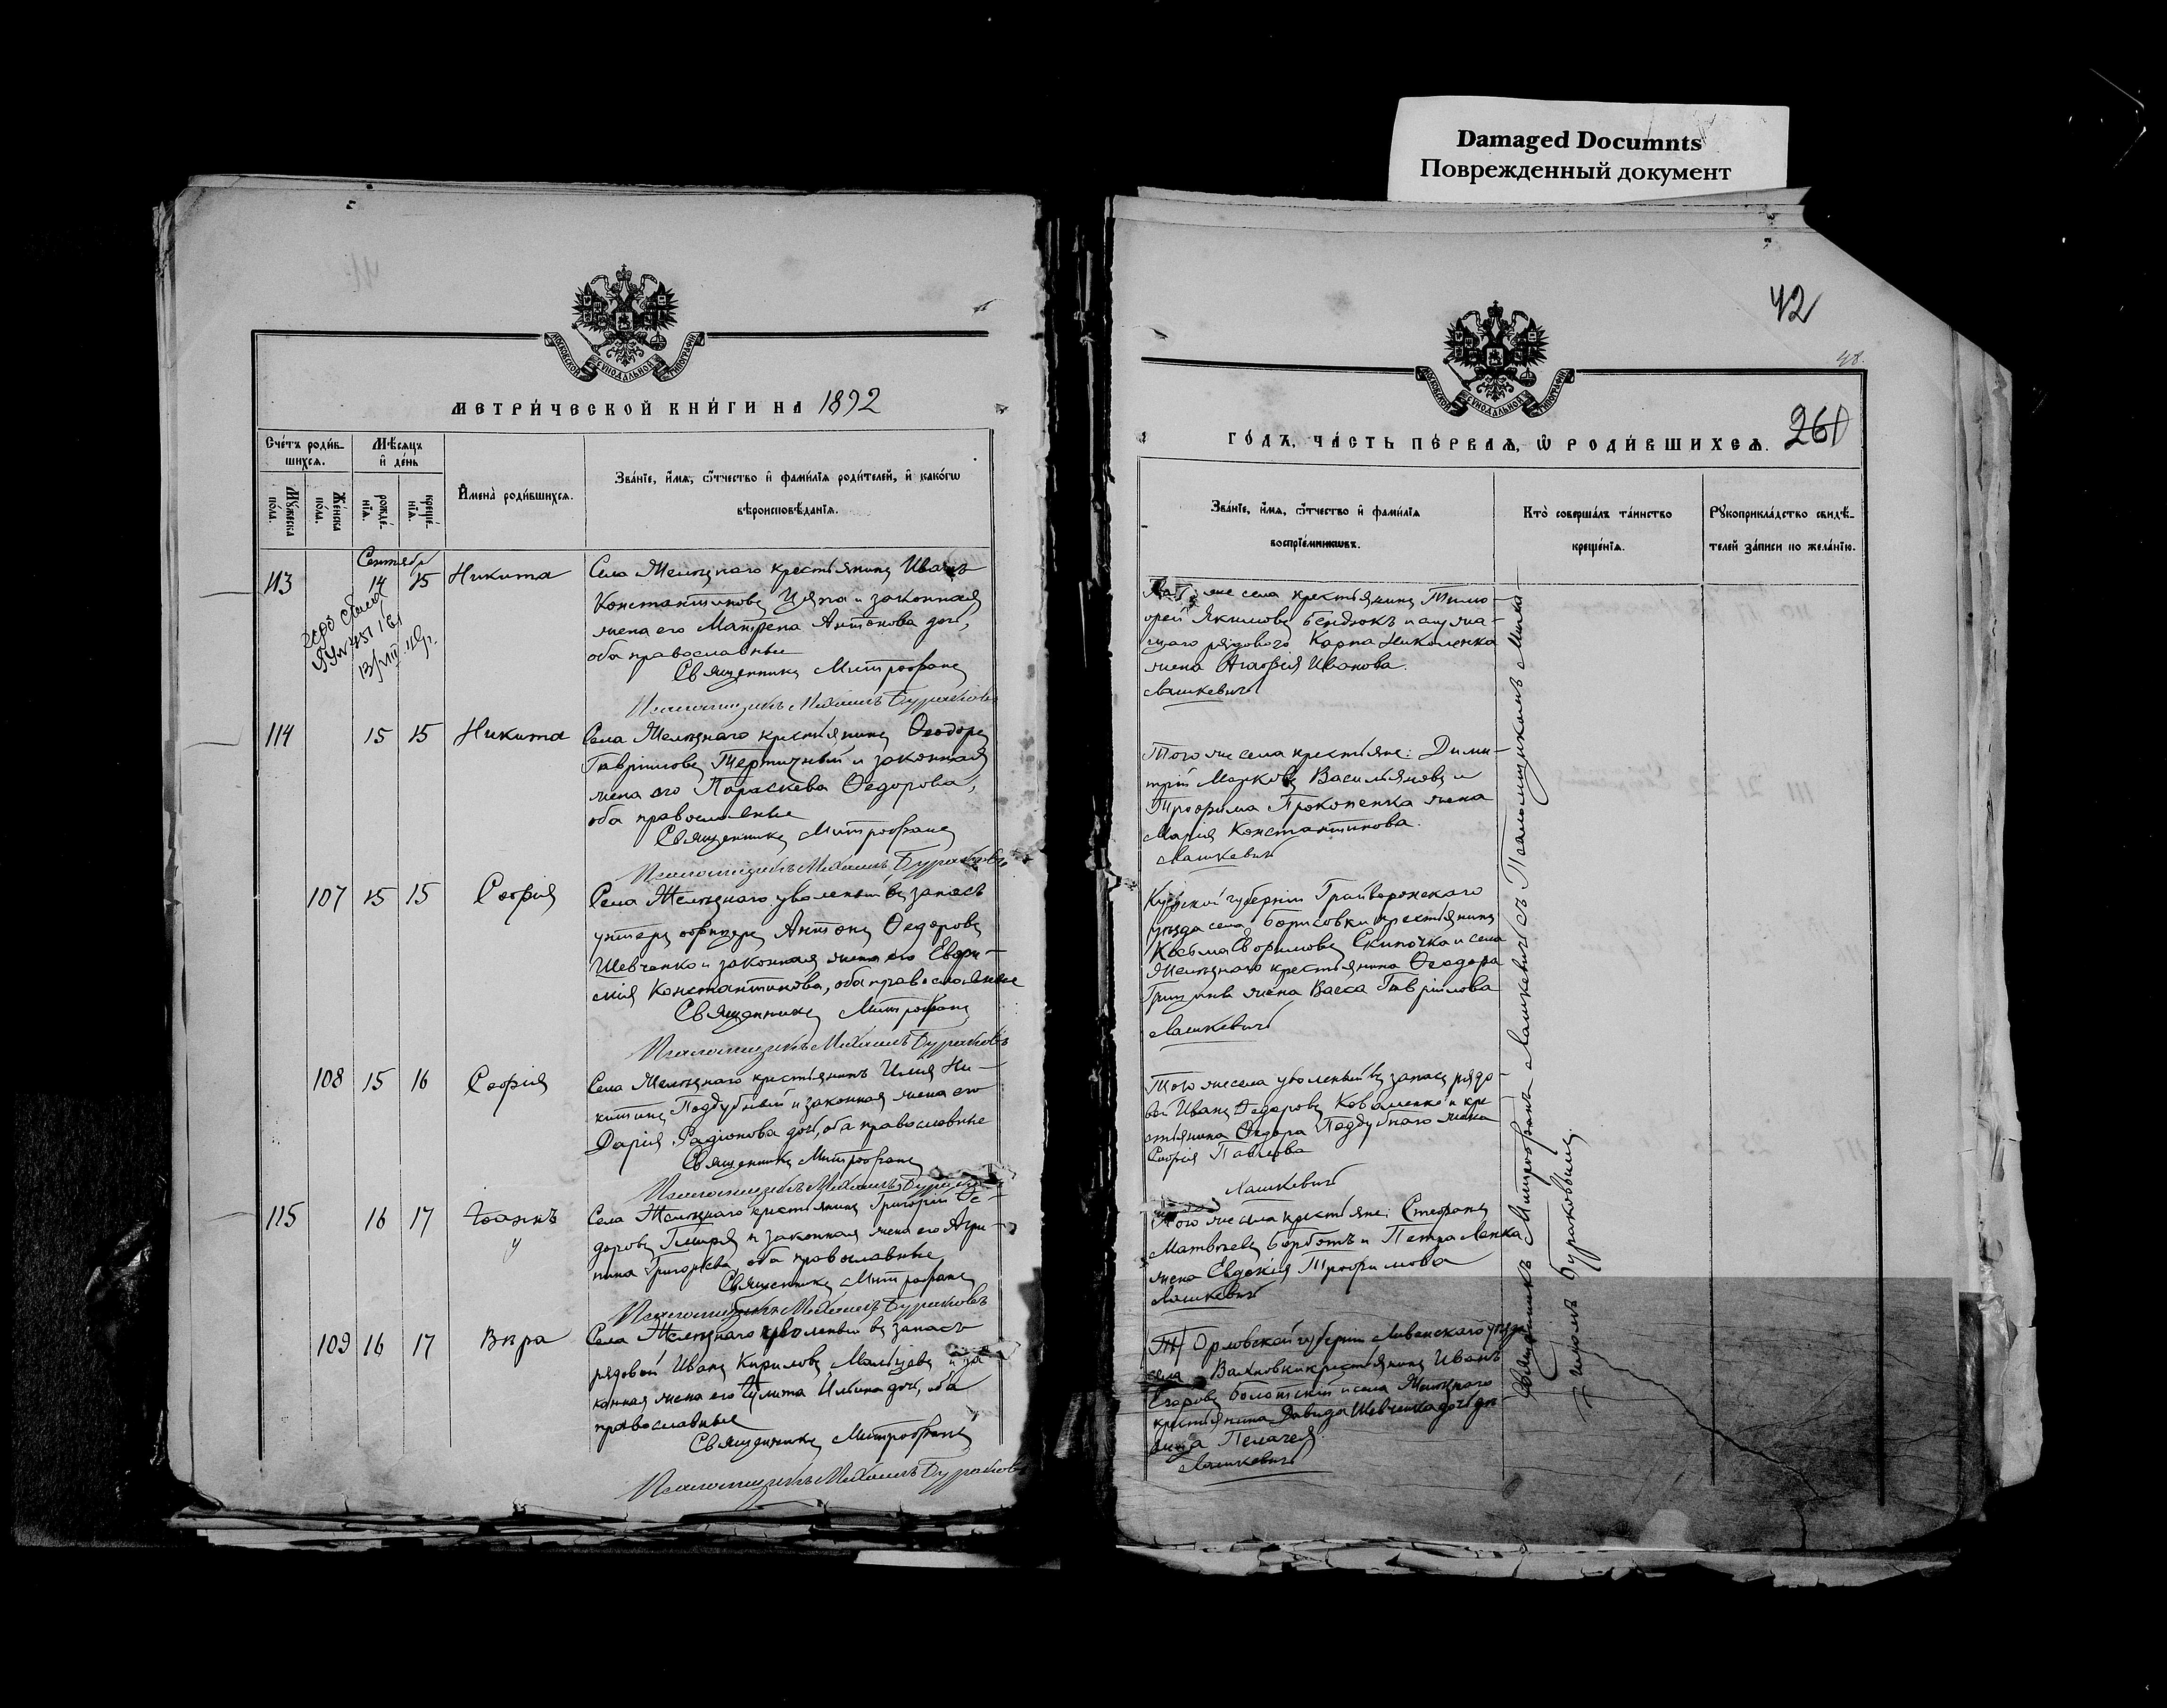 Damaged Documnts
Поврежденный документ
МОСКОВСКОЙ СѴНОДАЛЬНОЙ ТИПОГРАФІИ
МЕТРИ́ЧЕСКОЙ КНИ́ГИ НА 1892
Сче́тъ роди́в-
шихсѧ.
Мѣ́сѧцъ
и҆ де́нь
Мꙋ́жеска
по́ла.
Же́нска
по́ла.
рожде́-
нїѧ.
креще́-
нїѧ.
И҆мена̀ роди́вшихсѧ.
Зва́нїе, и҆́мѧ, ѻ҆́тчество и҆ фами́лїѧ роди́телей, и҆ како́гѡ
вѣроисповѣ́данїѧ.
Сентябрь
113 14 15 Никита
Села Желѣзнаго крестьянинъ Иванъ
Константиновъ и законная
жена его Матрена Антонова доч,
оба православные
Священникъ Митрофанъ
Псаломщикъ Михаилъ Бураковъ
114 15 15 Никита
Села Желѣзнаго крестьянинъ Ѳеодоръ
Гавріиловъ Тертичный и законная
жена его Параскева Ѳедорова,
оба православные
Священникъ Митрофанъ
Псаломщикъ Михаилъ Бураковъ
107 15 15 Софія
Села Желѣзнаго уволеный въ запасъ
унтеръ офицеръ Антонъ Ѳедоровъ
Шевченко и законная жена его Евфи-
мія Константинова, оба православные
Священникъ Митрофанъ
Псаломщикъ Михаилъ Бураковъ
108 15 16 Софія
Села Желѣзнаго крестьянинъ Илія Ни-
китинъ Поддубный и законная жена его
Дарія Радіонова доч, оба православные
Священникъ Митрофанъ
Псаломщикъ Михаилъ Бураковъ
115 16 17 Іоаннъ
Села Желѣзнаго крестьянинъ Григорій Ѳе-
доровъ Гмиря и законная жена его Агри-
пина Григорьева, оба православные
Священникъ Митрофанъ
Псаломщикъ Михаилъ Бураковъ
109 16 17 Вѣра
Села Желѣзнаго уволеный въ запасъ
рядовой Иванъ Кириловъ Мальцевъ и за
конная жена его Улита Ильина доч, оба
православные
Священникъ Митрофанъ
Псаломщикъ Михаилъ Бураковъ
42
48.
МОСКОВСКОЙ СѴНОДАЛЬНОЙ ТИПОГРАФІИ
ГО́ДЪ, ЧА́СТЬ ПЕ́РВАѦ, Ѡ҆ РОДИ́ВШИХСѦ. 261
Зва́нїе, и҆́мѧ, ѻ҆́тчество и҆ фами́лїѧ
воспрїе́мникѡвъ.
Кто̀ соверша́лъ та́инство
креще́нїѧ.
Рꙋкоприкла́дство свидѣ́-
телей за́писи по жела́нїю.
же села крестьянинъ Тимо-
фей Якимовъ Бендюкъ и
рядового Карпа Николенка
жена Агафія Иванова.
Лашкевичъ
Того же села крестьяне: Дими-
трій Марковъ Васильяновъ и
Трофима Прокопенка жена
Марія Константинова.
Лашкевичъ
Курской губерніи Грайворонскаго
уѣзда села Борисовки крестьянинъ
Косьма Ефимовъ Скипочка и села
Желѣзнаго крестьянина Ѳеодора
жена Васса Гавріилова
Лашкевичъ
Того же села уволеный въ запасъ рядо-
вой Иванъ Ѳедоровъ Коваленко и кре
стьянина Ѳедора Поддубнаго жена
Софія Павлова
Лашкевичъ
Того же села крестьяне: Стефанъ
Матвѣевъ Борботъ и Петра Лапка
жена Евдокія Трофимова
Лашкевичъ
Орловской губерніи Ливенскаго уѣзд
села Вахновки крестьянинъ Иванъ
Егоровъ Болотскій и села Желѣзнаго
крестьянина Давида Шевченка дочь дѣ
вица Пелагея.
Лашкевичъ
Священникъ Митрофанъ Лашкевичъ съ Псаломщикомъ Миха-
иломъ Бураковымъ.